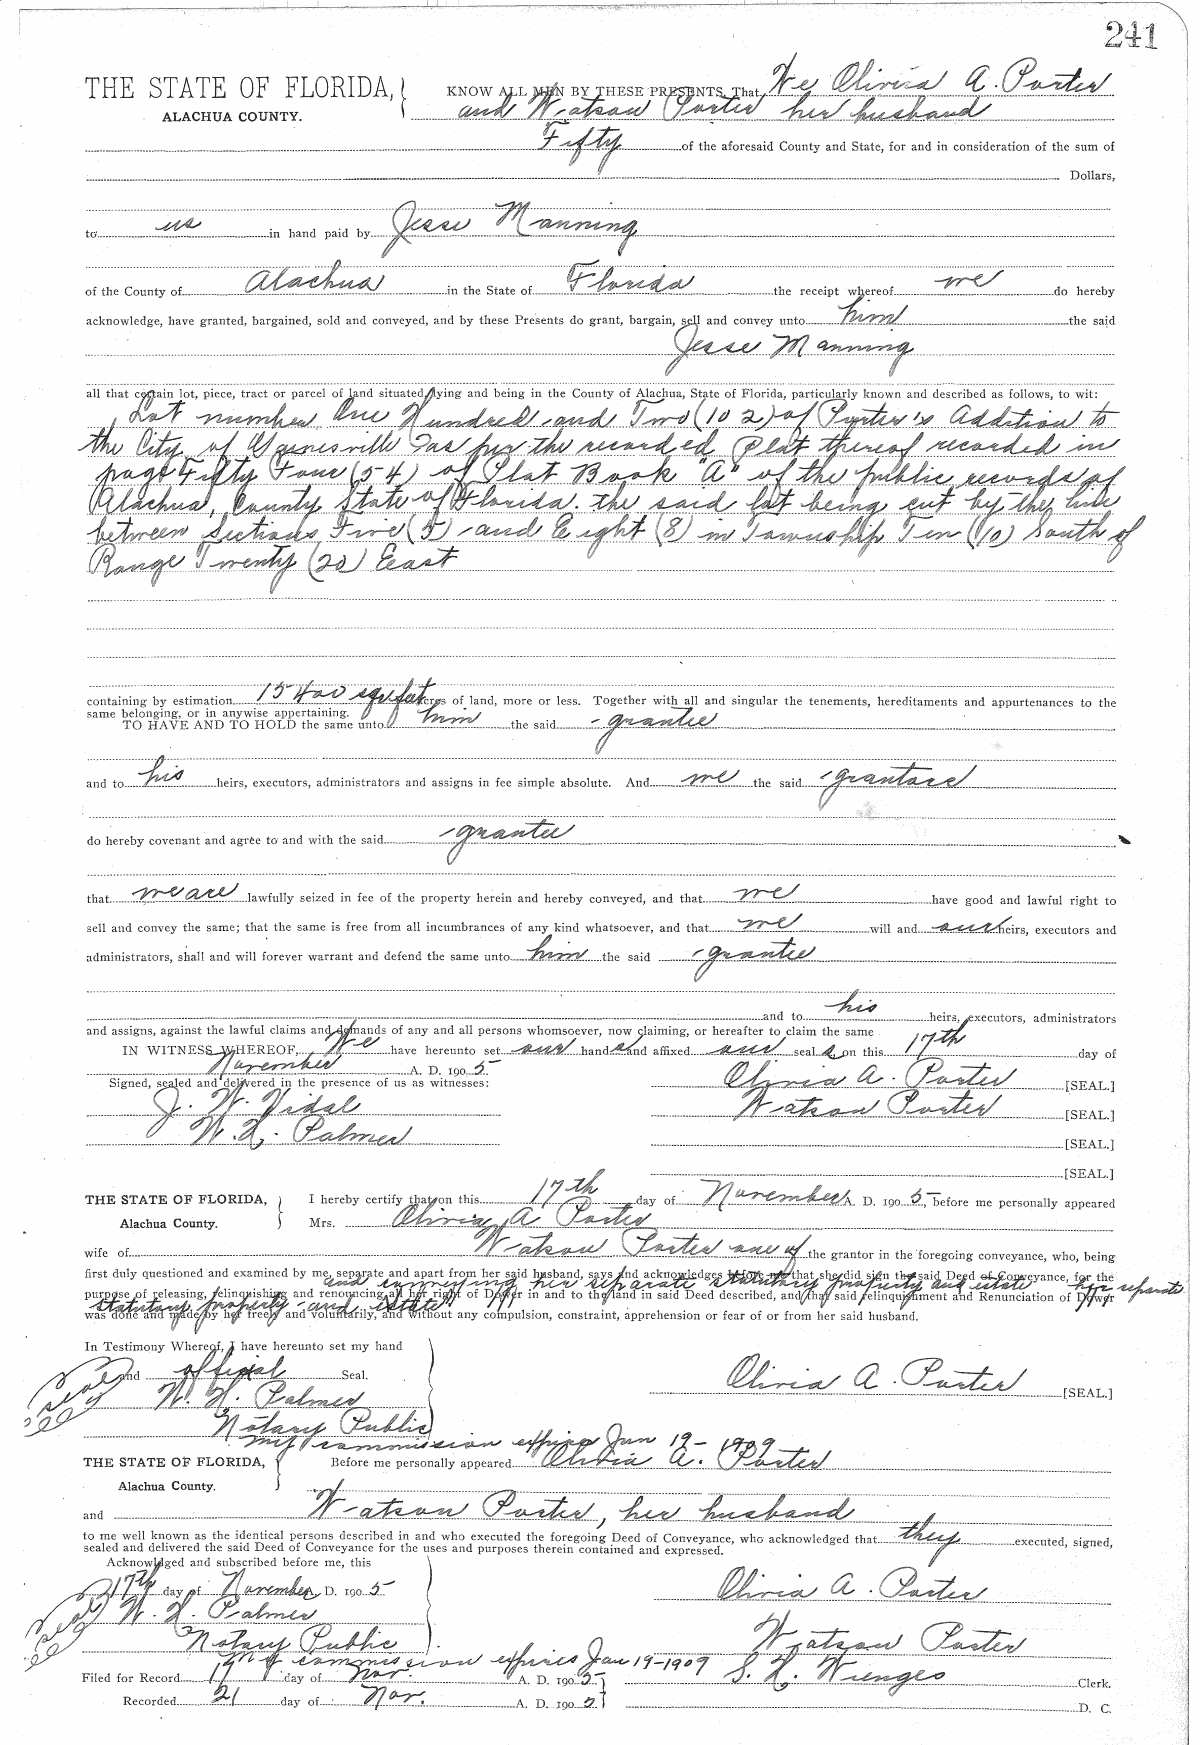 241
THE STATE OF FLORIDA, KNOW ALL MEN BY THESE PRESENTS, That We Olivia A. Porter
ALACHUA COUNTY. and Watson Porter her husband
Fifty of the aforesaid County and State, for and in consideration of the sum of
Dollars,
to us in hand paid by Jesse Manning
of the County of Alachua in the State of Florida the receipt whereof we do hereby
acknowledge, have granted, bargained, sold and conveyed, and by these Presents do grant, bargain, sell and convey unto him the said
Jesse Manning
all that certain lot, piece, tract or parcel of land situated, lying and being in the County of Alachua, State of Florida, particularly known and described as follows, to wit:
Lot number One Hundred and Two (102) of Porter's Addition to
the City of Gainesville as per the recorded plat thereof recorded in
page Fifty Four (54) of Plat Book "A" of the public records of
Alachua, County State of Florida. the said lot being cut by the line
between Sections Five (5) and Eight (8) in Township Ten (10) South of
Range Twenty (20) East
containing by estimation 15400 sqr feet acres of land, more or less. Together with all and singular the tenements, hereditaments and appurtenances to the
same belonging, or in anywise appertaining.
TO HAVE AND TO HOLD the same unto him the said grantee
and to his heirs, executors, administrators and assigns in fee simple absolute. And we the said grantors
do hereby covenant and agree to and with the said grantee
that we are lawfully seized in fee of the property herein and hereby conveyed, and that we have good and lawful right to
sell and convey the same; that the same is free from all incumbrances of any kind whatsoever, and that we will and our heirs, executors and
administrators, shall and will forever warrant and defend the same unto him the said grantee
and to his heirs, executors, administrators
and assigns, against the lawful claims and demands of any and all persons whomsoever, now claiming, or hereafter to claim the same
IN WITNESS WHEREOF, We have hereunto set our hands and affixed our seals, on this 17th day of
November A. D. 1905
Signed, sealed and delivered in the presence of us as witnesses: Olivia A. Porter [SEAL.]
J. W. Vidal Watson Porter [SEAL.]
W. H. Palmer [SEAL.]
[SEAL.]
THE STATE OF FLORIDA, I hereby certify that on this 17th day of November A. D. 1905 before me personally appeared
Alachua County. Mrs. Olivia A Porter
wife of Watson Porter one of the grantor in the foregoing conveyance, who, being
first duly questioned and examined by me, separate and apart from her said husband, says and acknowledges before me that she did sign the said Deed of Conveyance, for the
and conveying her separate statutory property and estate her separate
purpose of releasing, relinquishing and renouncing all her right of Dower in and to the land in said Deed described, and that said relinquishment and Renunciation of Dower
statutory property and estate
was done and made by her freely and voluntarily, and without any compulsion, constraint, apprehension or fear of or from her said husband.
In Testimony Whereof, I have hereunto set my hand
and official Seal. Olivia A. Porter [SEAL.]
Seal
W. H. Palmer
Notary Public
my commission expires Jan 19- 1909
THE STATE OF FLORIDA, Before me personally appeared Olivia A. Porter
Alachua County.
and Watson Porter, her husband
to me well known as the identical persons described in and who executed the foregoing Deed of Conveyance, who acknowledged that they executed, signed,
sealed and delivered the said Deed of Conveyance for the uses and purposes therein contained and expressed.
Acknowledged and subscribed before me, this
17th day of November A. D. 1905 Olivia A. Porter
Seal
W. H. Palmer
Notary Public Watson Porter
My commission expires Jan 19-1909
Filed for Record 17 day of Nov. A. D. 1905 S. H. Wienges Clerk.
Recorded 21 day of Nov. A. D. 1905 D. C.